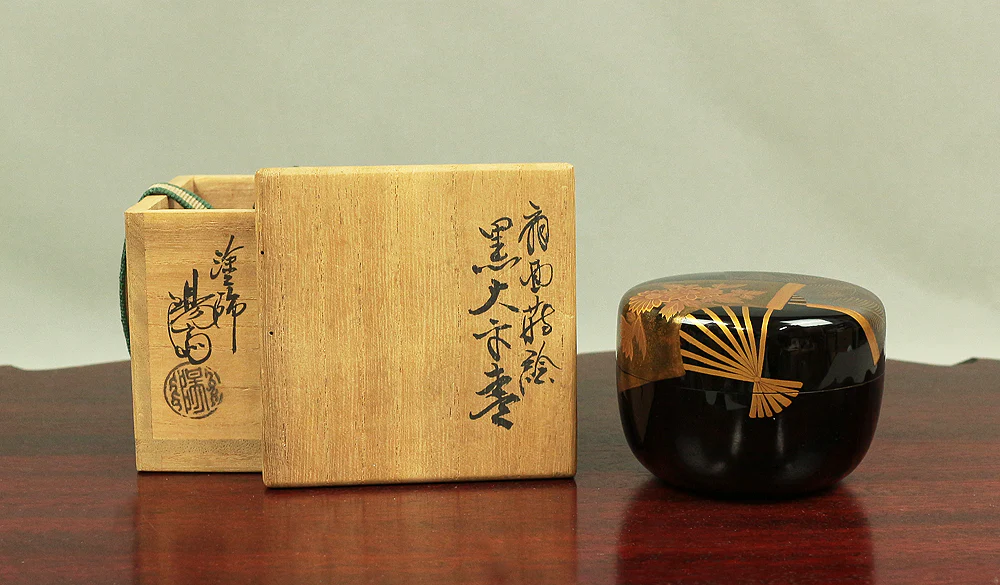 扇面蒔絵
黒大平棗
塗師